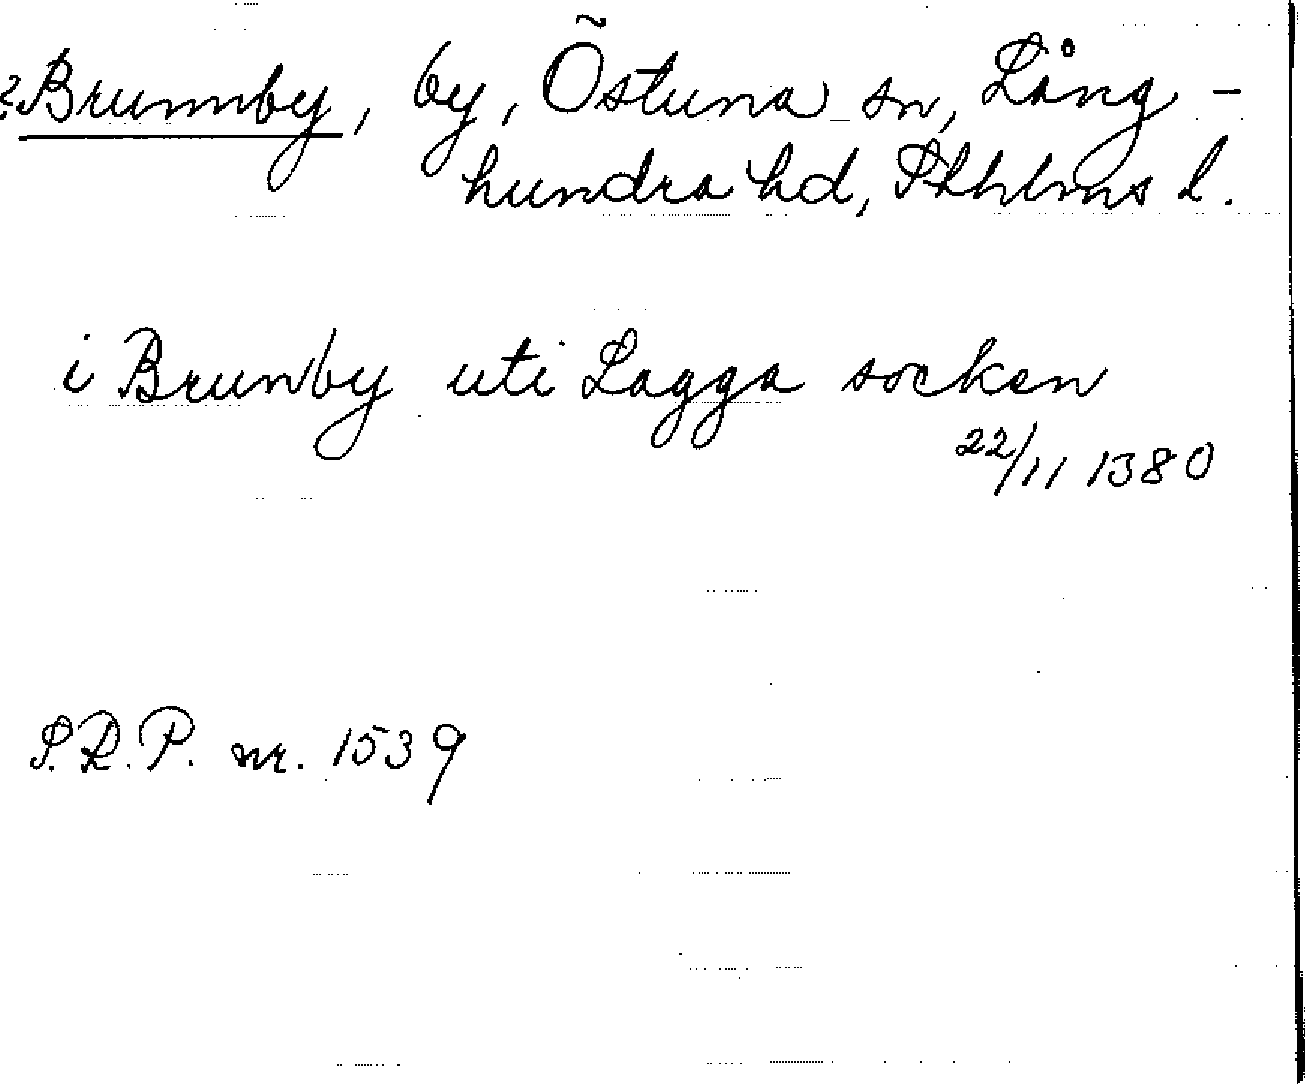 ?Brunnby, by, Östuna sn, Lång-
hundra hd, Sthlms l.
i Brunby uti Lagga socken
22/11 1380
S.R.P. nr. 1539